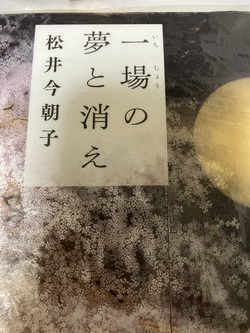 一場の
いちじょう
夢と消え
松井今朝子